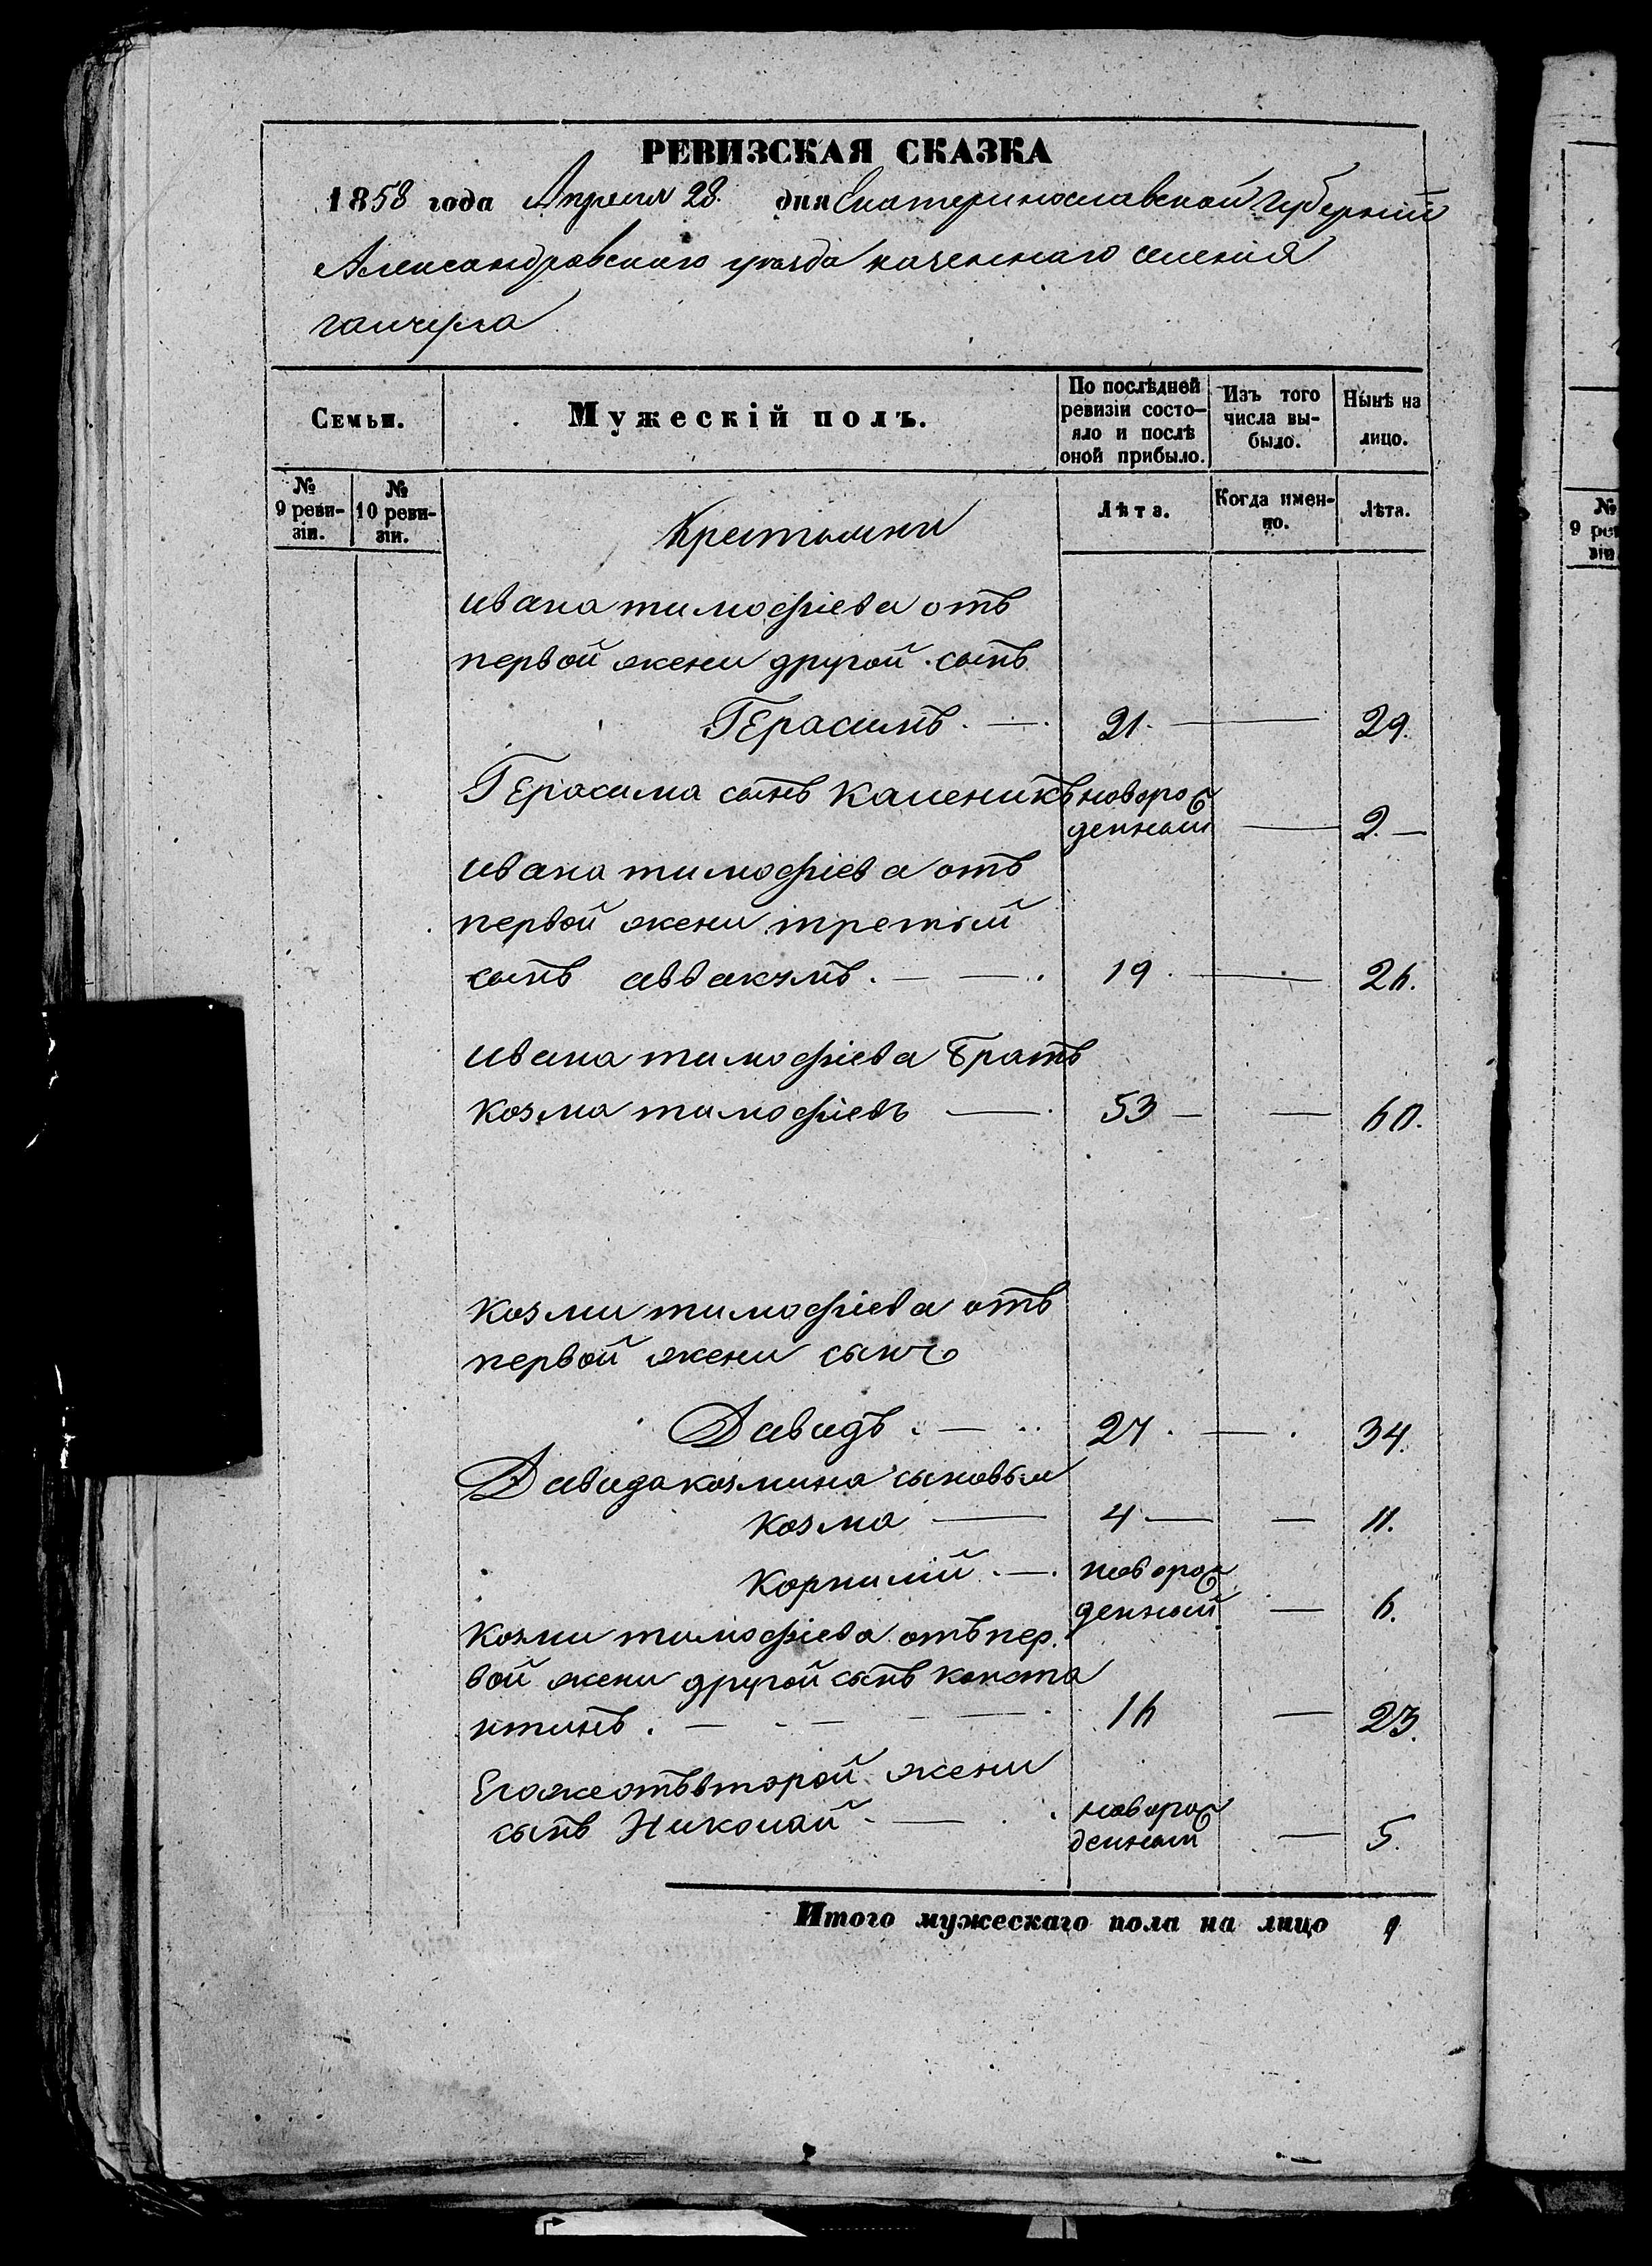 РЕВИЗСКАЯ СКАЗКА
1858 года Апреля 28. дня Екатеринославской Губернии
Александровского уезда казеннаго селения
гайчула
Семьи.
Мужескій полъ.
По послѣдней ревизіи состо-
яло и послѣ
оной прибыло.
Изъ того
числа вы-
было.
Нынѣ на
лицо.
№
9 реви-
зіи.
№
10 реви-
зіи.
Крестьяни
Лѣта.
Когда имен-
но.
Лѣта.
ивана тимофіева отъ
первой жени другой сынъ
Герасимъ. — 21. — 29.
Герасима сынъ каленикъ новорож
денный — 2. —
ивана тимофіева отъ
первой жени третий
сынъ аввакумъ. — — 19. — 26.
ивана тимофіева братъ
козма тимофіевъ — 53 — — 60.
козми тимофіева отъ
первой жени сынъ
Давидъ. — 27. — 34.
Давида козмина сыновьи
козма — 4 — — 11.
корнилий. — новорож
денный — 6.
козми тимофіева отъ пер.
вой жени другой сынъ конста
нтинъ. — — — 16 — 23.
Егоже отъ второй жени
сынъ Николай — новорож
денный — 5.
Итого мужескаго пола на лицо 9
№
9 рев
зіи